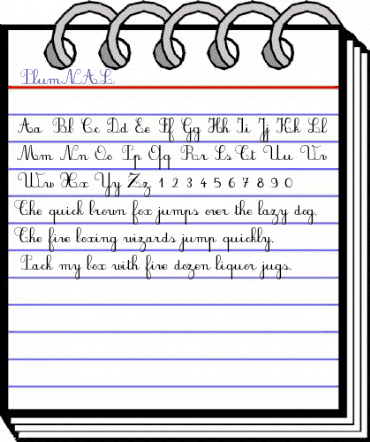 PlumNAL
Aa Bb Cc Dd Ee Ff Gg Hh Ii Jj Kk Ll
Mm Nn Oo Pp Qq Rr Ss Tt Uu Vv
Ww Xx Yy Zz 1 2 3 4 5 6 7 8 9 0
The quick brown fox jumps over the lazy dog.
The five boxing wizards jump quickly.
Pack my box with five dozen liquor jugs.